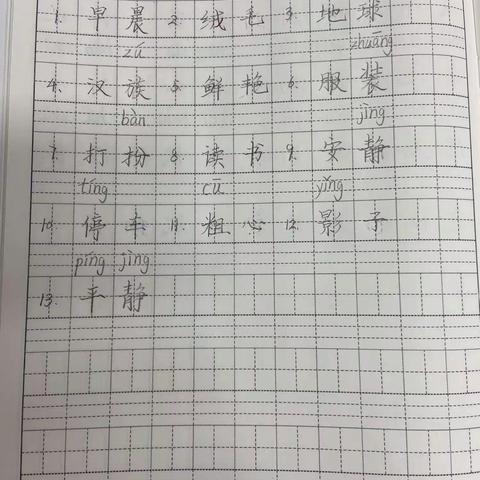 1. 早晨 2. 绒毛 3. 地球
zú zhuāng
4. 汉族 5. 鲜艳 6. 服装
bàn jìng
7. 打扮 8. 读书 9. 安静
tíng cū yǐng
10. 停车 11. 粗心 12. 影子
píng jìng
13. 平静